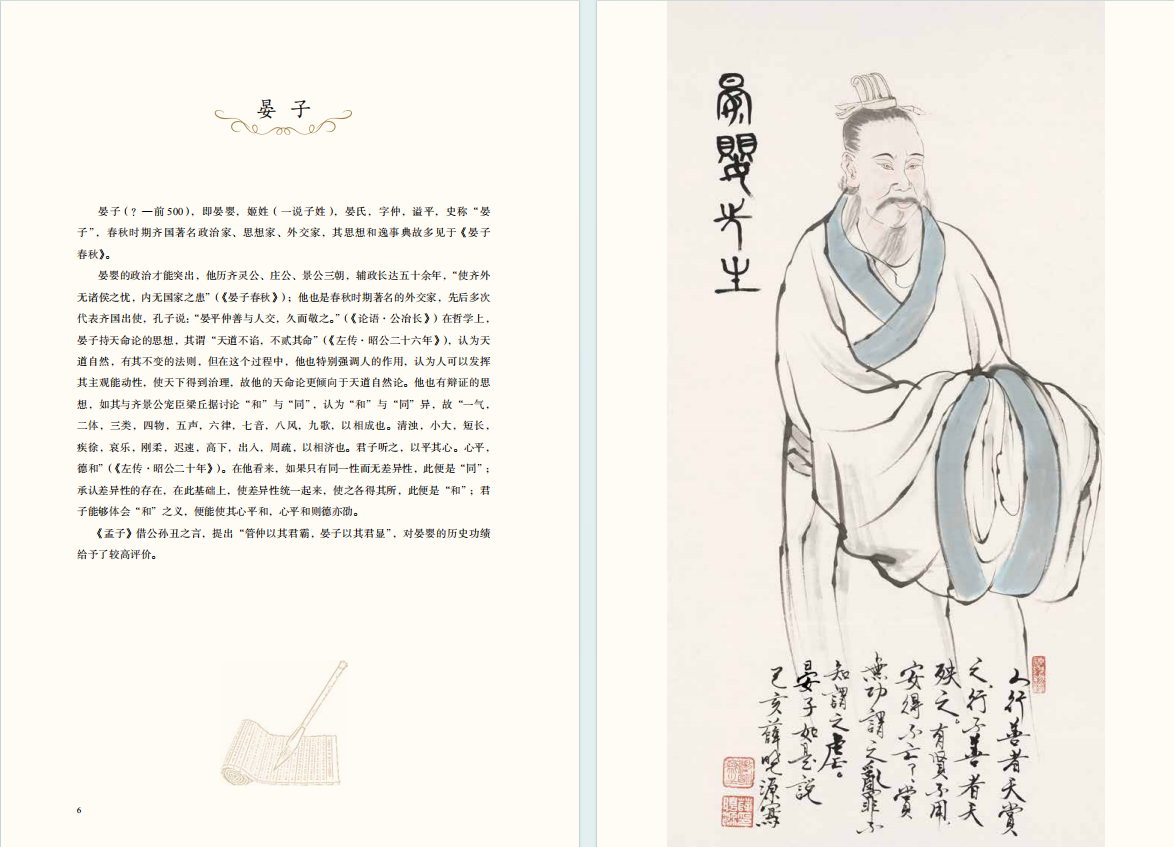 晏 子
晏子（？—前500），即晏婴，姬姓（一说子姓），晏氏，字仲，谥平，史称“晏
子”，春秋时期齐国著名政治家、思想家、外交家，其思想和逸事典故多见于《晏子
春秋》。
晏婴的政治才能突出，他历齐灵公、庄公、景公三朝，辅政长达五十余年，“使齐外
无诸侯之忧，内无国家之患”（《晏子春秋》）；他也是春秋时期著名的外交家，先后多次
代表齐国出使，孔子说：“晏平仲善与人交，久而敬之。”（《论语·公冶长》）在哲学上，
晏子持天命论的思想，其谓“天道不谄，不贰其命”（《左传·昭公二十六年》），认为天
道自然，有其不变的法则，但在这个过程中，他也特别强调人的作用，认为人可以发挥
其主观能动性，使天下得到治理，故他的天命论更倾向于天道自然论。他也有辩证的思
想，如其与齐景公宠臣梁丘据讨论“和”与“同”，认为“和”与“同”异，故“一气，
二体，三类，四物，五声，六律，七音，八风，九歌，以相成也。清浊，小大，短长，
疾徐，哀乐，刚柔，迟速，高下，出入，周疏，以相济也。君子听之，以平其心。心平，
德和”（《左传·昭公二十年》）。在他看来，如果只有同一性而无差异性，此便是“同”；
承认差异性的存在，在此基础上，使差异性统一起来，使之各得其所，此便是“和”；君
子能够体会“和”之义，便能使其心平和，心平和则德亦劭。
《孟子》借公孙丑之言，提出“管仲以其君霸，晏子以其君显”，对晏婴的历史功绩
给予了较高评价。
6
晏嬰先生
人行善者天賞
之行不善者天
殃之。有賢不用
安得不亡賞
無功謂之亂罪不
知謂之虐。
晏子如是說
己亥薛曉源寫